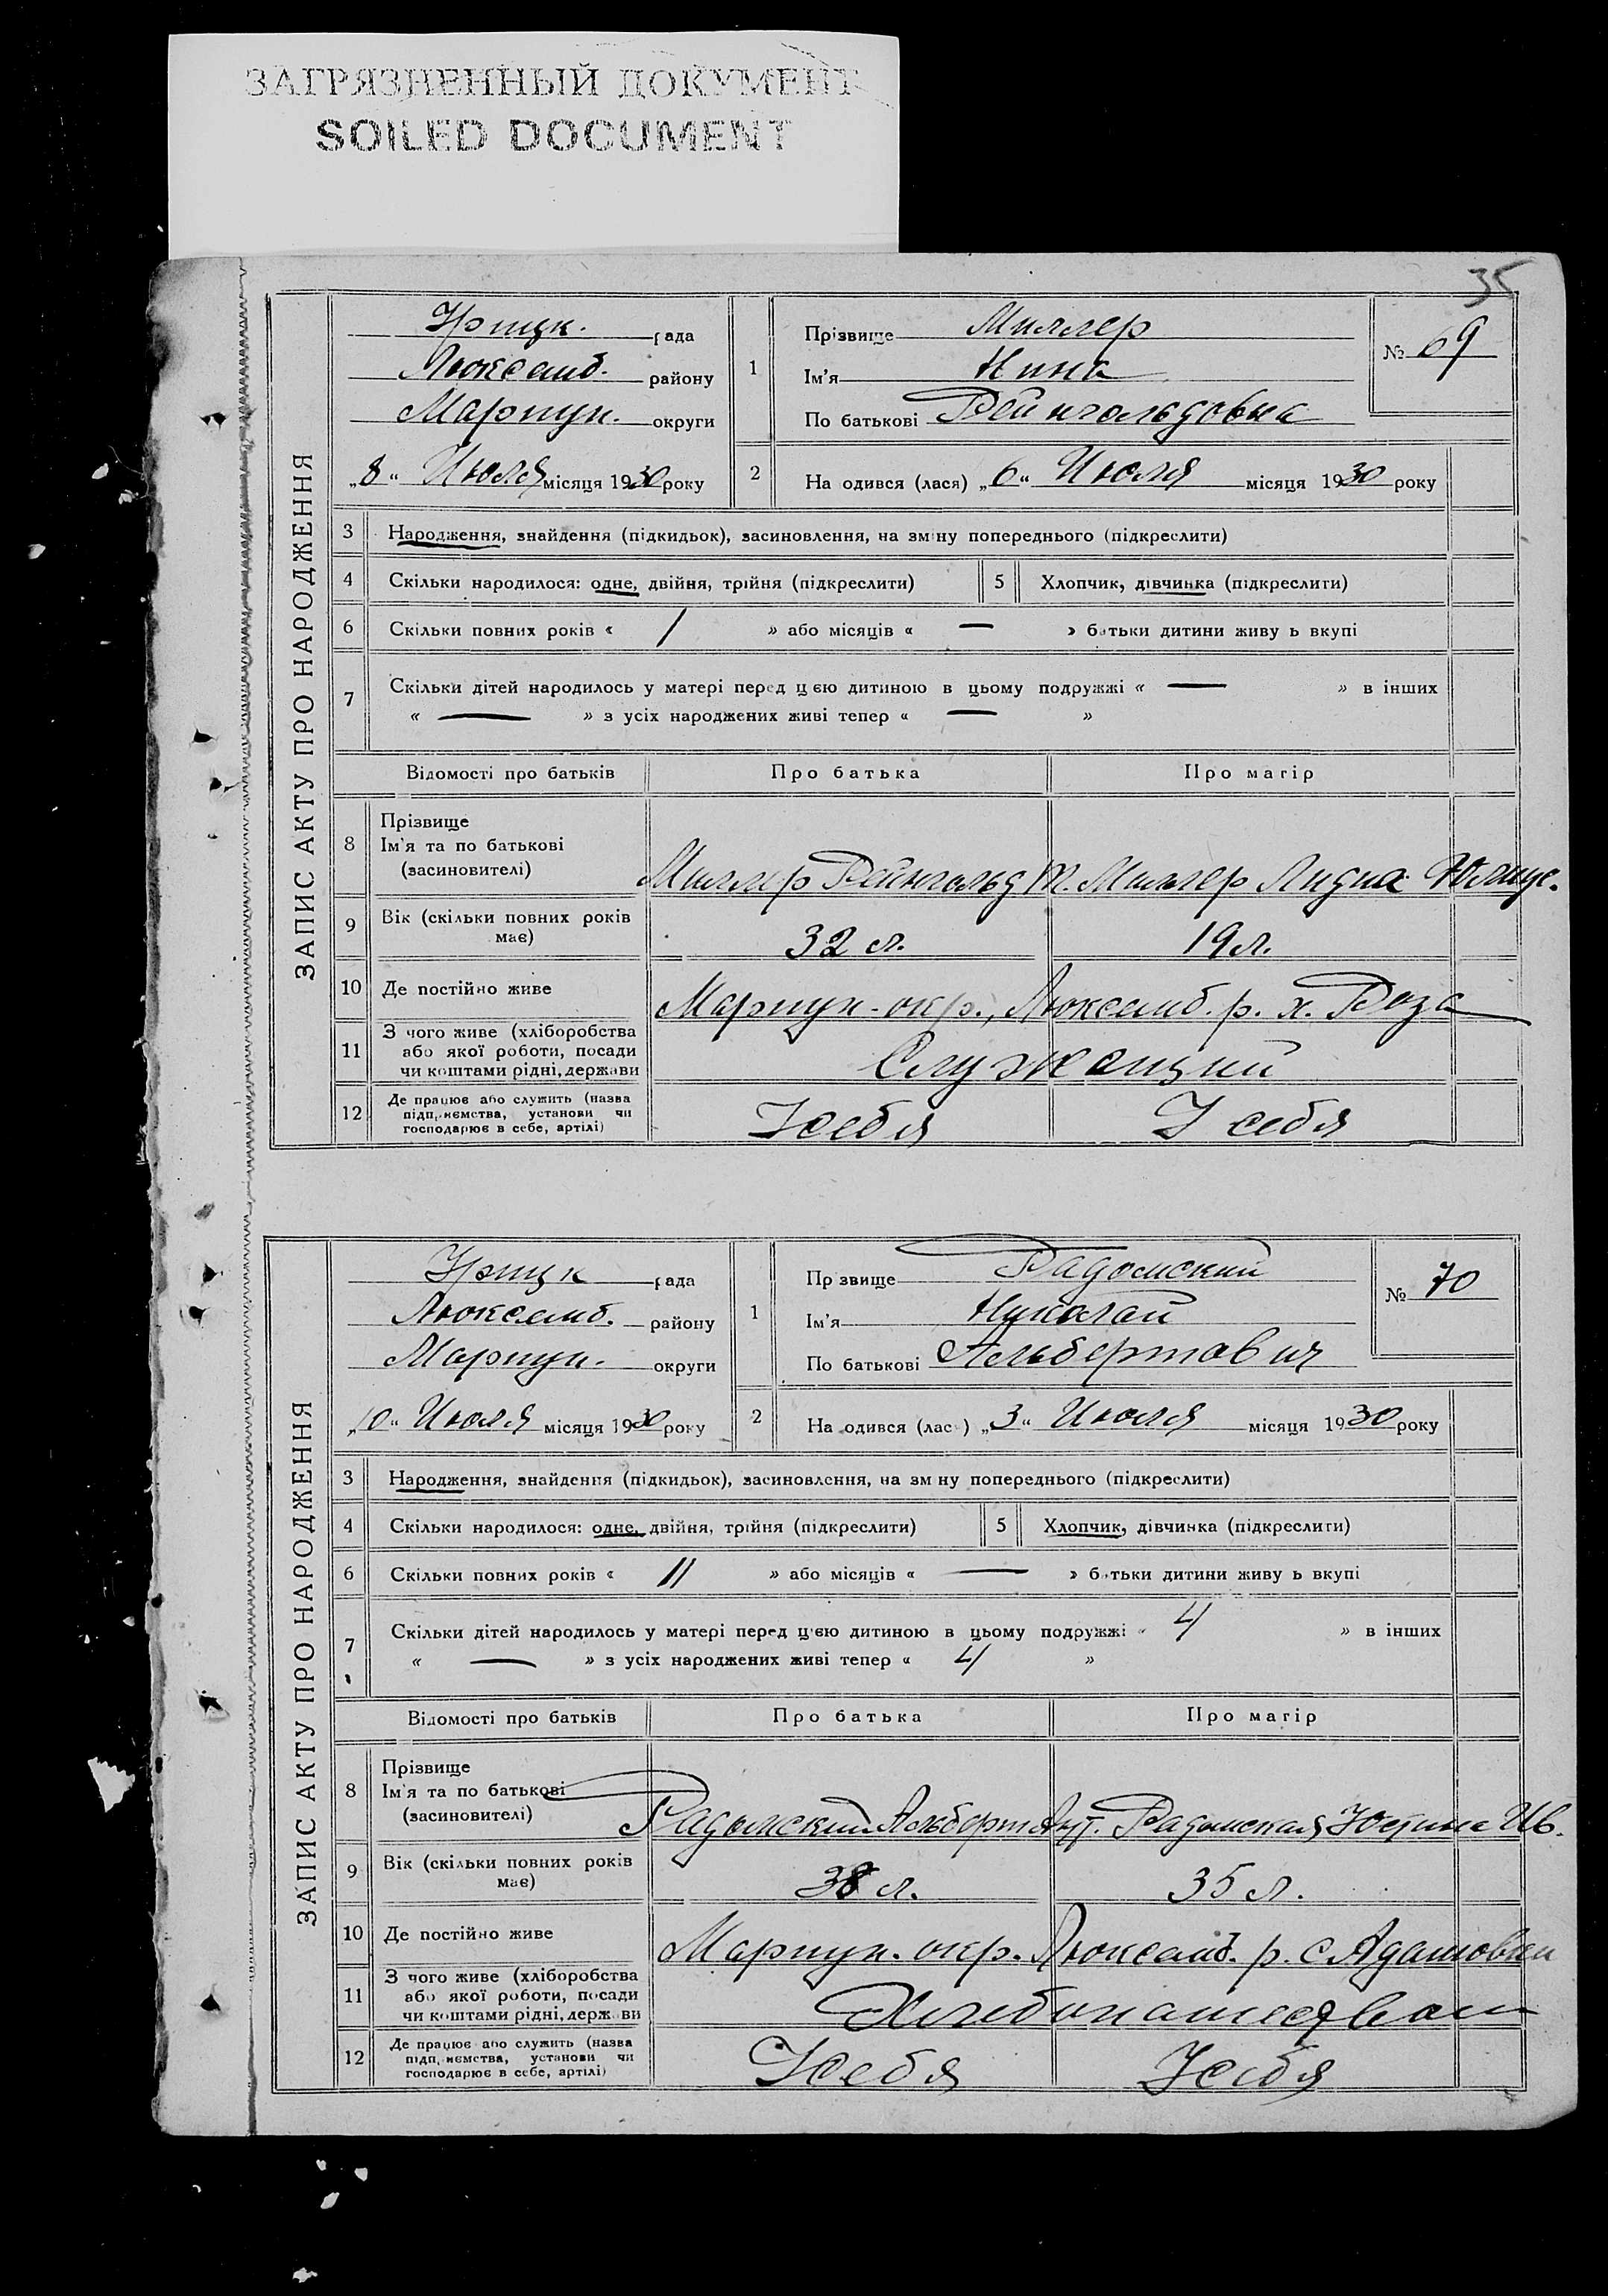 ЗАГРЯЗНЕННЫЙ ДОКУМЕНТ
SOILED DOCUMENT
35
ЗАПИС АКТУ ПРО НАРОДЖЕННЯ
Урицк. рада
Люксемб. району
Мариуп. округи
„8“ Июля місяця 1930 року
1
Прізвище Миллер
Ім'я Нина
По батькові Рейнгольдовна
№ 69
2 На одився (лася) „6“ Июля місяця 1930 року
3 Народження, знайдення (підкидьок), засиновлення, на зміну попереднього (підкреслити)
4 Скільки народилося: одне, двійня, трійня (підкреслити) 5 Хлопчик, дівчинка (підкреслити)
6 Скільки повних років « 1 » або місяців « — » батьки дитини живу ь вкупі
7 Скільки дітей народилось у матері перед цією дитиною в цьому подружжі « — » в інших
« — » з усіх народжених живі тепер « — »
Відомості про батьків Про батька Про матір
8 Прізвище
Ім'я та по батькові
(засновителі)
Миллер Рейнгольд Миллер Лидия Юлиус.
9 Вік (скільки повних років
має)
32 л. 19 л.
10 Де постійно живе Мариуп. окр., Люксемб. р. х. Роза
11 З чого живе (хліборобства
або якої роботи, посади
чи коштами рідні, держави
Служащий
12 Де працює або служить (назва
підприємства, установи чи
господарює в себе, артілі)
У себя У себя
ЗАПИС АКТУ ПРО НАРОДЖЕННЯ
Урицк рада
Люксемб. району
Мариуп. округи
„10“ Июля місяця 1930 року
1
Пр звище Радомский
Ім'я Николай
По батькові Альбертович
№ 70
2 На одився (лас ) „3“ Июля місяця 1930 року
3 Народження, знайдення (підкидьок), засиновлення, на зм ну попереднього (підкреслити)
4 Скільки народилося: одне, двійня, трійня (підкреслити) 5 Хлопчик, дівчинка (підкреслити)
6 Скільки повних років « 11 » або місяців « — » батьки дитини живу ь вкупі
7 Скільки дітей народилось у матері перед цією дитиною в цьому подружжі « 4 » в інших
« — » з усіх народжених живі тепер « 4 »
Відомості про батьків Про батька Про матір
8 Прізвище
Ім'я та по батькові
(засновителі)
Радомский Альберт Радомская Юстина Ив.
9 Вік (скільки повних років
має)
38 л. 35 л.
10 Де постійно живе Мариуп. окр. Люксемб. р. с Адамовки
11 З чого живе (хліборобства
або якої роботи, посади
чи коштами рідні, держави
Хлебопашеством
12 Де працює або служить (назва
підприємства, установи чи
господарює в себе, артілі)
У себя У себя